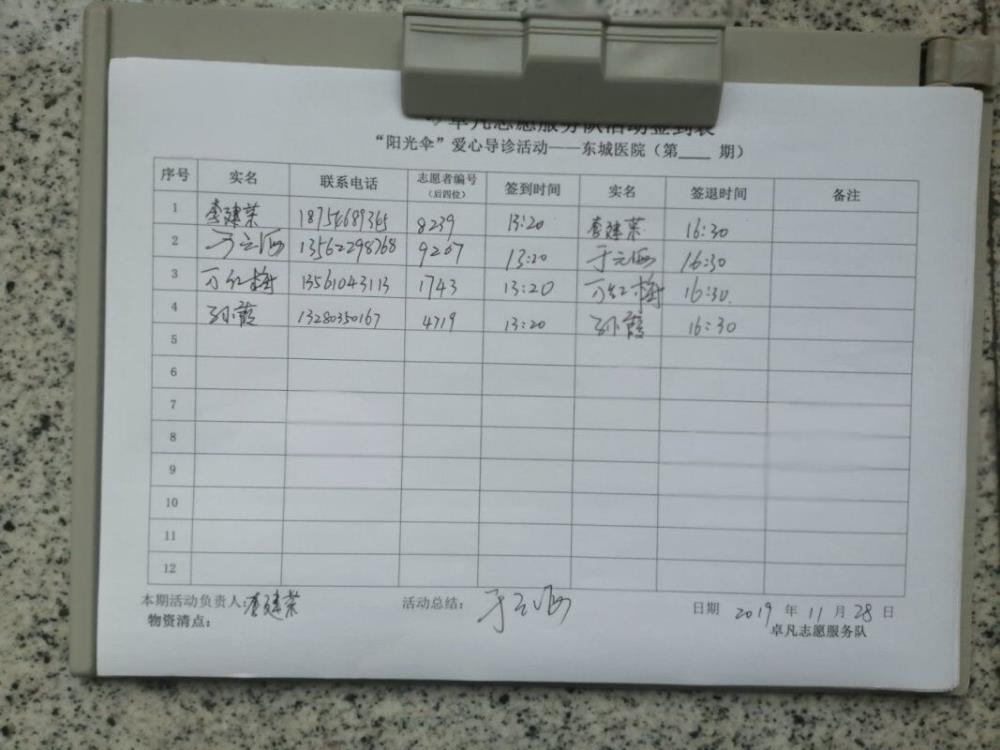 卓凡志愿服务队活动签到表
“阳光伞”爱心导诊活动——东城医院（第____期）
序号 实名 联系电话 志愿者编号（后四位） 签到时间 实名 签退时间 备注
1 查建荣 8239 13:20 查建荣 16:30
2 于云海 13562298768 9267 13:20 于云海 16:30
3 万红梅 13561043113 1743 13:20 万红梅 16:30
4 孙霞 13280350167 4719 13:20 孙霞 16:30
5
6
7
8
9
10
11
12
本期活动负责人:查建荣 活动总结：于云海 日期 2019 年 11 月 28 日
物资清点： 卓凡志愿服务队